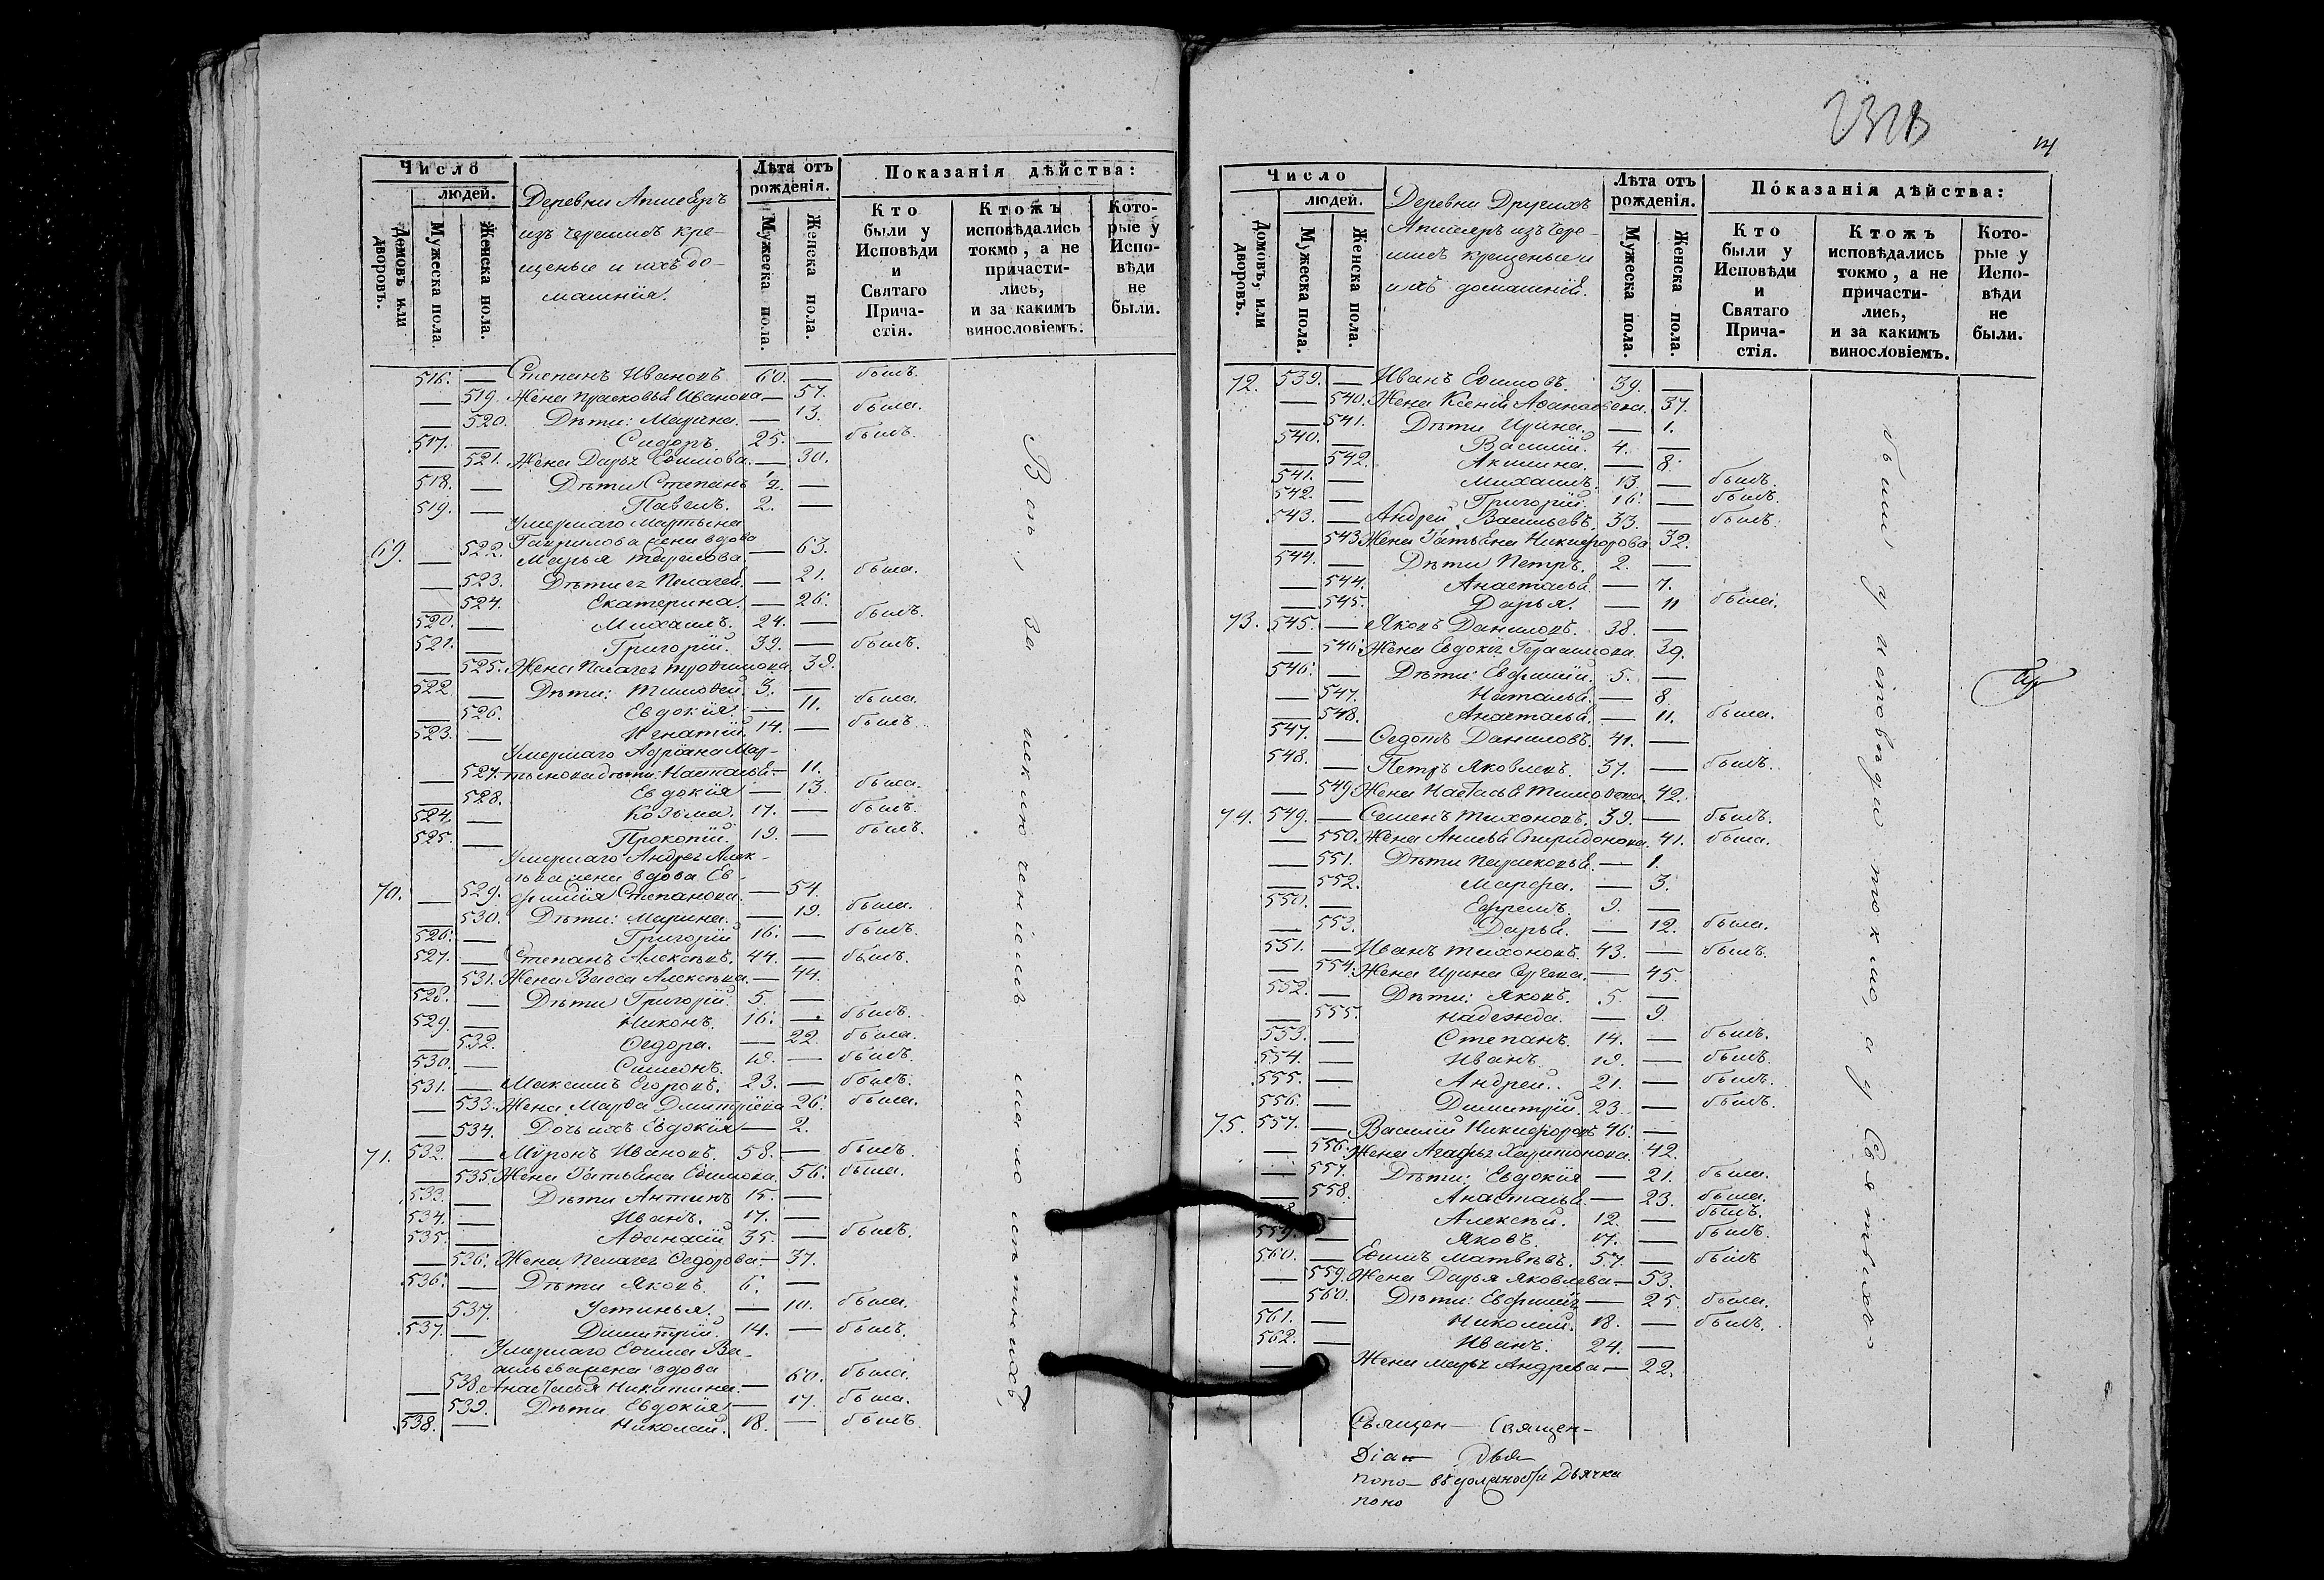 Число
людей.
Домовъ или дворовъ.
Мужеска пола.
Женска пола.
Деревни Апшеяръ
изъ черемисъ кре-
щеные и ихъ до-
машнія.
Лѣта отъ рожденія.
Мужеска пола.
Женска пола.
Показанія дѣйства:
Кто были у Исповѣди и Святаго Прича-стія.
Ктожъ исповѣдались токмо, а не причасти-лись, и за какимъ винословіемъ.
Кото-рые у Испо-вѣди не были.
516. — Степанъ Ивановъ 60. — былъ.
— 519. Жена Прасковья Иванова — 57.
— 520. Дѣти: Марина. — 13. была.
517. — Сидоръ. 25. — былъ.
— 521. Жена Дарья Ефимова. — 30.
518. — Дѣти Степанъ —
519. — Павелъ. 2. —
Умершаго Мартына
Гаврилова жена вдова
69. — 522. Марья Тарасова — 63.
— 523. Дѣти ея Пелагея. — 21. была.
— 524. Екатерина. — 26.
520. — Михаилъ. 24. — былъ.
521. — Григорій. 39. — былъ.
— 525. Жена Пелагея Трофимова 39.
522. — Дѣти: Тимофей. 3. —
— 526. Евдокія. — 11. была.
523. — Игнатій. 14. — былъ.
Умершаго Адріана Мар-
— 527. тынова дѣти: Наталья. — 11.
— 528. Евдокія — 13. была.
524. — Козьма. 17. — былъ.
525. — Прокопій. 19. — былъ.
Умершаго Андрея Алек-
ѣева жена вдова Ев-
70. — 529. фимія Степанова. — 54.
— 530. Дѣти: Марина. — 19. была.
526. — Григорій 16. — былъ.
527. — Степанъ Алексѣевъ. 44. — былъ.
— 531. Жена Васса Алексѣева. — 44.
528. — Дѣти Григорій. 5. —
529. — Никонъ. 16. — былъ.
— 532. Ѳедора. — 22. была.
530. — Симеонъ. 19. — былъ.
531. — Максимъ Егоровъ. 23. — былъ.
— 533. Жена Марфа Дмитріева 26. была.
— 534. Дочь ихъ Евдокія — 2.
71. 532. — Миронъ Ивановъ. 58. — былъ.
— 535. Жена Татьяна Ефимова. 56. была.
533. — Дѣти Антипъ 15. —
534. — Иванъ. 17. —
535. — Афанасій 35. — былъ.
— 536. Жена Пелагея Ѳедорова. — 37.
536. — Дѣти Яковъ. 6. —
— 537. Устинья. — 10. была.
537. — Димитрій. 14. — былъ.
Умершаго Ефима Ва-
сильева жена вдова
— 538. Анастасья Никитина. — 60. была.
— 539. Дѣти Евдокія — 17. была.
538. — Николай. 18. — былъ.
Всѣ, за исключеніемъ малолѣтнихъ,
Число
людей.
Домовъ, или дворовъ.
Мужеска пола.
Женска пола.
Деревни Другихъ
Апшеяръ изъ чере-
мисъ крещеные и
ихъ домашніе.
Лѣта отъ рожденія.
Мужеска пола.
Женска пола.
Показанія дѣйства:
Кто были у Исповѣди и Святаго Прича-стія.
Ктожъ исповѣдались токмо, а не причасти-лись, и за какимъ винословіемъ.
Кото-рые у Испо-вѣди не были.
72. 539. — Иванъ Ефимовъ. 39. —
— 540. Жена Ксенія Афанасьева. 37.
— 541. Дѣти Ирина. — 1.
540. — Василій. 4. —
— 542. Акилина. — 8.
541. — Михаилъ. 13. — былъ.
542. — Григорій. 16. — былъ.
543. — Андрей Васильевъ. 33. — былъ.
— 543. Жена Татьяна Никифорова 32.
544. — Дѣти Петръ. 2. —
— 544. Анастасья. — 7.
— 545. Дарья. — 11 была.
73. 545. — Яковъ Даниловъ. 38. —
— 546. Жена Евдокія Герасимова. 39.
546. — Дѣти: Евфимій. 5. —
— 547. Наталья. — 8.
— 548. Анастасья. — 11. была.
547. — Ѳедотъ Даниловъ. 41. —
548. — Петръ Яковлевъ. 37. — былъ.
— 549. Жена Настасья Тимофеева. 42.
74. 549. — Семенъ Тихоновъ. 39. — былъ.
— 550. Жена Анисья Спиридонова. 41. была.
— 551. Дѣти Парасковья. — 1.
— 552. Марфа. — 3.
550. — Ефремъ. 9. —
— 553. Дарья. — 12. была.
551. — Иванъ Тихоновъ. 43. — былъ.
— 554. Жена Ирина Сергеева. — 45.
552. — Дѣти: Яковъ. 5. —
— 555. Надежда. — 9.
553. — Степанъ. 14. — былъ.
554. — Иванъ. 19. — былъ.
555. — Андрей. 21. — былъ.
556. — Димитрій. 23. — былъ.
75. 557. — Василій Никифоровъ 46. —
— 556. Жена Агафья Харитонова. 42.
— 557. Дѣти: Евдокія — 21. была.
— 558. Анастасья. — 23. была.
— Алексѣй. 12. — былъ.
559. — Яковъ. 17. — былъ.
560. — Ефимъ Матвѣевъ. 57. — былъ
— 559. Жена Дарья Яковлева — 53.
— 560. Дѣти: Евфимія — 25. была.
561. — Николай. 18. — былъ.
562. — Иванъ. 24. —
— Жена Марья Андреева — 22.
были у исповѣди токмо, а у Святыхъ
Священ — Священ-
Діак — Дья
поно — въ должности Дьячка
поно